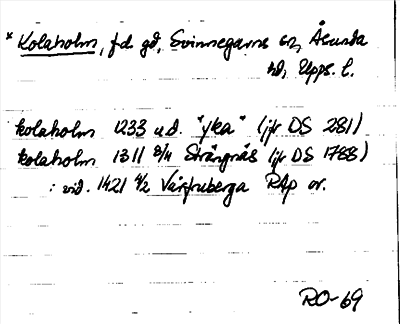 * Kolaholm, f.d. gd, Svinnegarns sn, Åsunda
hd, Upps. l.
kolaholm 1233 u.d. "yka" (jfr DS 281)
kolaholm 1311 8/11 Strängnäs (jfr DS 1788)
: vid. 1421 4/2 Vårfruberga RAp or.
RO-69